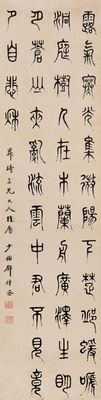 露氣寒光集微陽下楚邱猨嗁
洞庭樹人在木蘭舟廣澤生明
月蒼山夾亂流雲中君不見竟
夕自悲秋
三兄大人雅屬